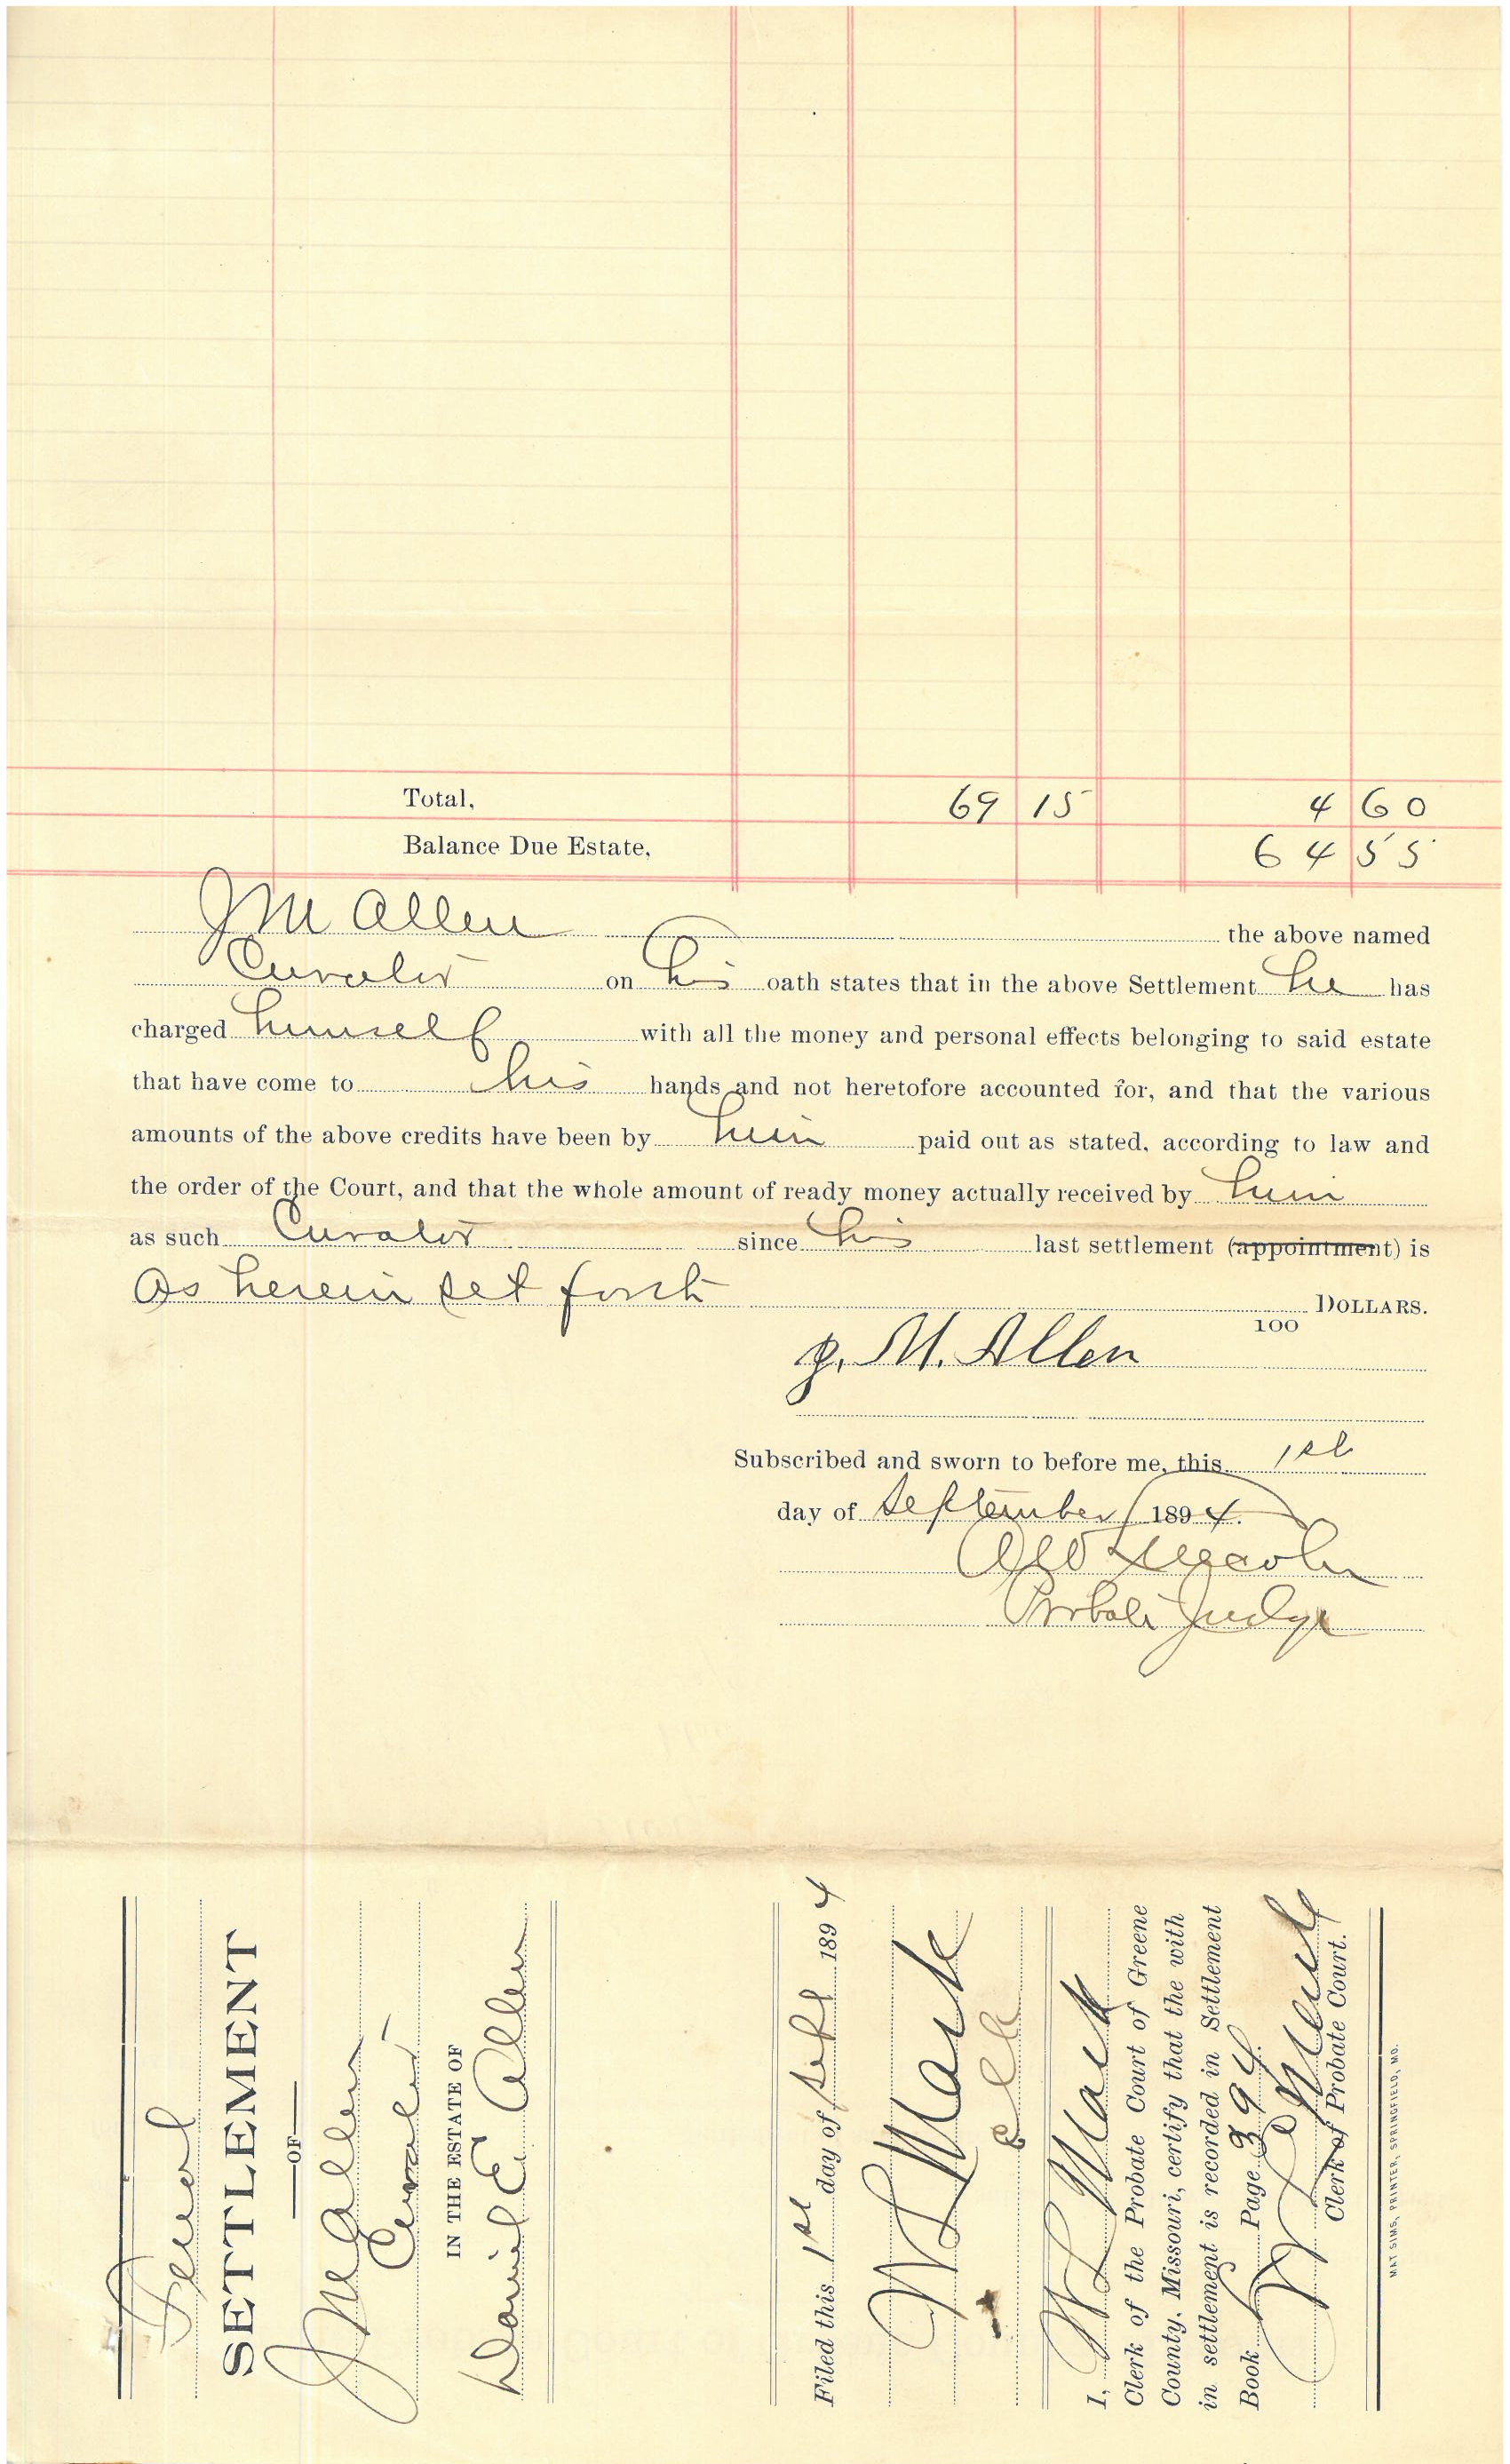 Total, 69 15 4 60
Balance Due Estate, 64 55
J M Allen the above named
Curator on his oath states that in the above Settlement he has
charged himself with all the money and personal effects belonging to said estate
that have come to his hands and not heretofore accounted for, and that the various
amounts of the above credits have been by him paid out as stated, according to law and
the order of the Court, and that the whole amount of ready money actually received by him
as such Curator since his last settlement (appointment) is
As herein set forth DOLLARS.
100
J. M. Allen
Subscribed and sworn to before me, this 1st
day of September 1894.
Probate Judge
Final
SETTLEMENT
OF
J M Allen
Curator
IN THE ESTATE OF
Daniel E Allen
Filed this 1st day of Sept 1894
W L Mack
Clk
I, W L Mack
Clerk of the Probate Court of Greene
County, Missouri, certify that the with
in settlement is recorded in Settlement
Book Page 394.
W L Mack
Clerk of Probate Court.
MAT SIMS, PRINTER, SPRINGFIELD, MO.